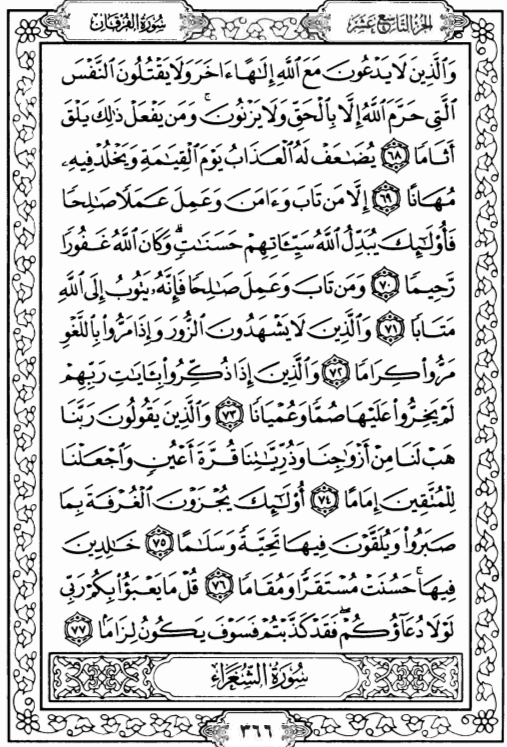 سُورَةُ الفُرْقَانِ
الجُزْءُ التَّاسِعَ عَشَرَ
وَالَّذِينَ لَا يَدْعُونَ مَعَ اللَّهِ إِلَٰهًا ءَاخَرَ وَلَا يَقْتُلُونَ النَّفْسَ
الَّتِي حَرَّمَ اللَّهُ إِلَّا بِالْحَقِّ وَلَا يَزْنُونَ ۚ وَمَن يَفْعَلْ ذَٰلِكَ يَلْقَ
أَثَامًا ٦٨ يُضَاعَفْ لَهُ الْعَذَابُ يَوْمَ الْقِيَامَةِ وَيَخْلُدْ فِيهِ
مُهَانًا ٦٩ إِلَّا مَن تَابَ وَءَامَنَ وَعَمِلَ عَمَلًا صَالِحًا
فَأُولَٰئِكَ يُبَدِّلُ اللَّهُ سَيِّئَاتِهِمْ حَسَنَاتٍ ۗ وَكَانَ اللَّهُ غَفُورًا
رَّحِيمًا ٧٠ وَمَن تَابَ وَعَمِلَ صَالِحًا فَإِنَّهُ يَتُوبُ إِلَى اللَّهِ
مَتَابًا ٧١ وَالَّذِينَ لَا يَشْهَدُونَ الزُّورَ وَإِذَا مَرُّوا بِاللَّغْوِ
مَرُّوا كِرَامًا ٧٢ وَالَّذِينَ إِذَا ذُكِّرُوا بِـَٔايَاتِ رَبِّهِمْ
لَمْ يَخِرُّوا عَلَيْهَا صُمًّا وَعُمْيَانًا ٧٣ وَالَّذِينَ يَقُولُونَ رَبَّنَا
هَبْ لَنَا مِنْ أَزْوَاجِنَا وَذُرِّيَّاتِنَا قُرَّةَ أَعْيُنٍ وَاجْعَلْنَا
لِلْمُتَّقِينَ إِمَامًا ٧٤ أُولَٰئِكَ يُجْزَوْنَ الْغُرْفَةَ بِمَا
صَبَرُوا وَيُلَقَّوْنَ فِيهَا تَحِيَّةً وَسَلَامًا ٧٥ خَالِدِينَ
فِيهَا ۚ حَسُنَتْ مُسْتَقَرًّا وَمُقَامًا ٧٦ قُلْ مَا يَعْبَؤُا بِكُمْ رَبِّي
لَوْلَا دُعَاؤُكُمْ ۖ فَقَدْ كَذَّبْتُمْ فَسَوْفَ يَكُونُ لِزَامًا ٧٧
سُورَةُ الشُّعَرَاءِ
٣٦٦